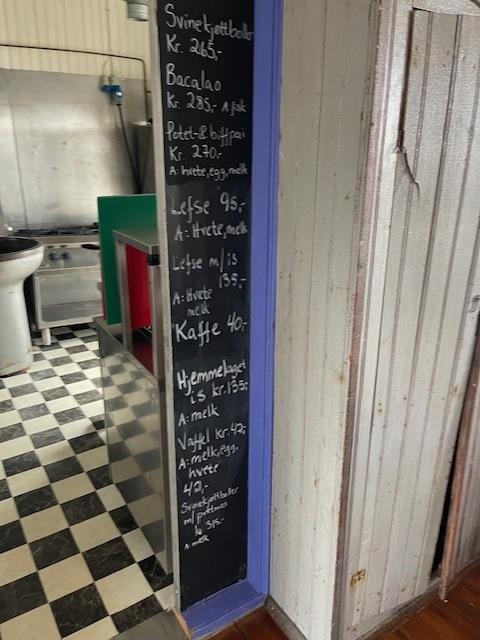 Svinekjøttboller
Kr. 265,-
Bacalao
Kr. 285,- A: fisk
Potet- & biffpai
Kr. 270,-
A: hvete, egg, melk
Lefse 95,-
A: Hvete, melk
Lefse m/is
135,-
A: Hvete
melk
Kaffe 40,-
Hjemmelaget
is kr. 135,-
A: melk
Vaffel kr. 42,-
A: melk, egg,
hvete
40,-
Svinekjøttboller
m/ potetmos
kr 315,-
A: melk